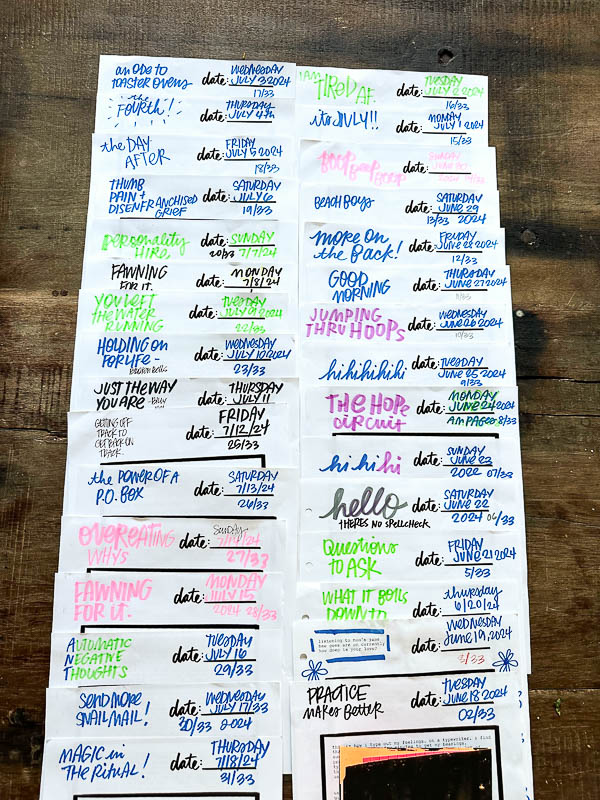 an ODE to
TOASTER OVENS
date: WEDNESDAY
JULY 3 2024
17/33
the
FOURTH!
date: THURSDAY
JULY 4th
the DAY
AFTER
date: FRIDAY
JULY 5 2024
18/33
THUMB
PAIN +
DISENFRANCHISED
GRIEF
date: SATURDAY
JULY 6
19/33
personality
HIRE.
date: SUNDAY
20/33 7/7/24
FAWNING
FOR IT.
date: MONDAY
7/8/24
YOU LEFT
THE WATER
RUNNING
date: TUESDAY
JULY 9 2024
22/33
HOLDING ON
FOR LIFE -
date: WEDNESDAY
JULY 10 2024
23/33
JUST THE WAY
YOU ARE
date: THURSDAY
JULY 11
GETTING OFF
TRACK TO
GET BACK ON
TRACK.
date: FRIDAY
7/12/24
25/33
the POWER OF A
P.O. BOX
date: SATURDAY
7/13/24
26/33
OVEREATING
WHYS
date: Sunday
7/14/24
27/33
FAWNING
FOR IT.
date: MONDAY
JULY 15
2024 28/33
AUTOMATIC
NEGATIVE
THOUGHTS
date: TUESDAY
JULY 16
29/33
SEND MORE
SNAIL MAIL!
date: WEDNESDAY
JULY 17/33
30/33 2024
MAGIC in
THE RITUAL!
date: THURSDAY
7/18/24
31/33
I AM
TIRED AF.
date: TUESDAY
JULY 2 2024
16/33
its JULY!!
date: MONDAY
JULY 1 2024
15/33
BEEP BEEP BEEP
date: SUNDAY
JUNE 30
BEACH BOYS
date: SATURDAY
JUNE 29
13/33 2024
MORE ON
the BACK!
date: FRIDAY
JUNE 28 2024
12/33
GOOD
MORNING
date: THURSDAY
JUNE 27 2024
11/33
JUMPING
THRU HOOPS
date: WEDNESDAY
JUNE 26 2024
10/33
hihihihihi
date: TUESDAY
JUNE 25 2024
9/33
THE HOPE
CIRCUIT
date: MONDAY
JUNE 24 2024
8/33
hi hi hi
date: SUNDAY
JUNE 23
07/33
hello
THERES NO SPELLCHECK
date: SATURDAY
JUNE 22
2024 06/33
Questions
TO ASK
date: FRIDAY
JUNE 21 2024
5/33
WHAT IT BOILS
DOWN TO
date: thursday
6/20/24
listening to
bee gees are on currently
how deep is your love?
date: WEDNESDAY
June 19, 2024
3/33
PRACTICE
MAKES BETTER
date: TUESDAY
JUNE 18 2024
02/33